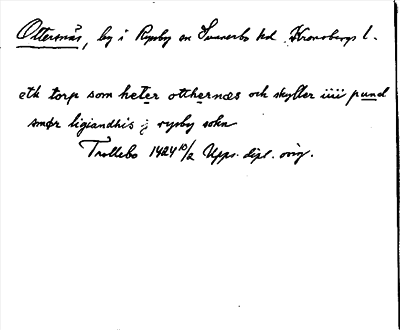 Otternäs, by i Ryssby sn Sunnerbo hd Kronobergs l.
etk torp som heter otthernæs och skyller iiii pund
smør ligiandhis j rysby sokn
Trollebo 1424 10/2 Upps. dipl. orig.